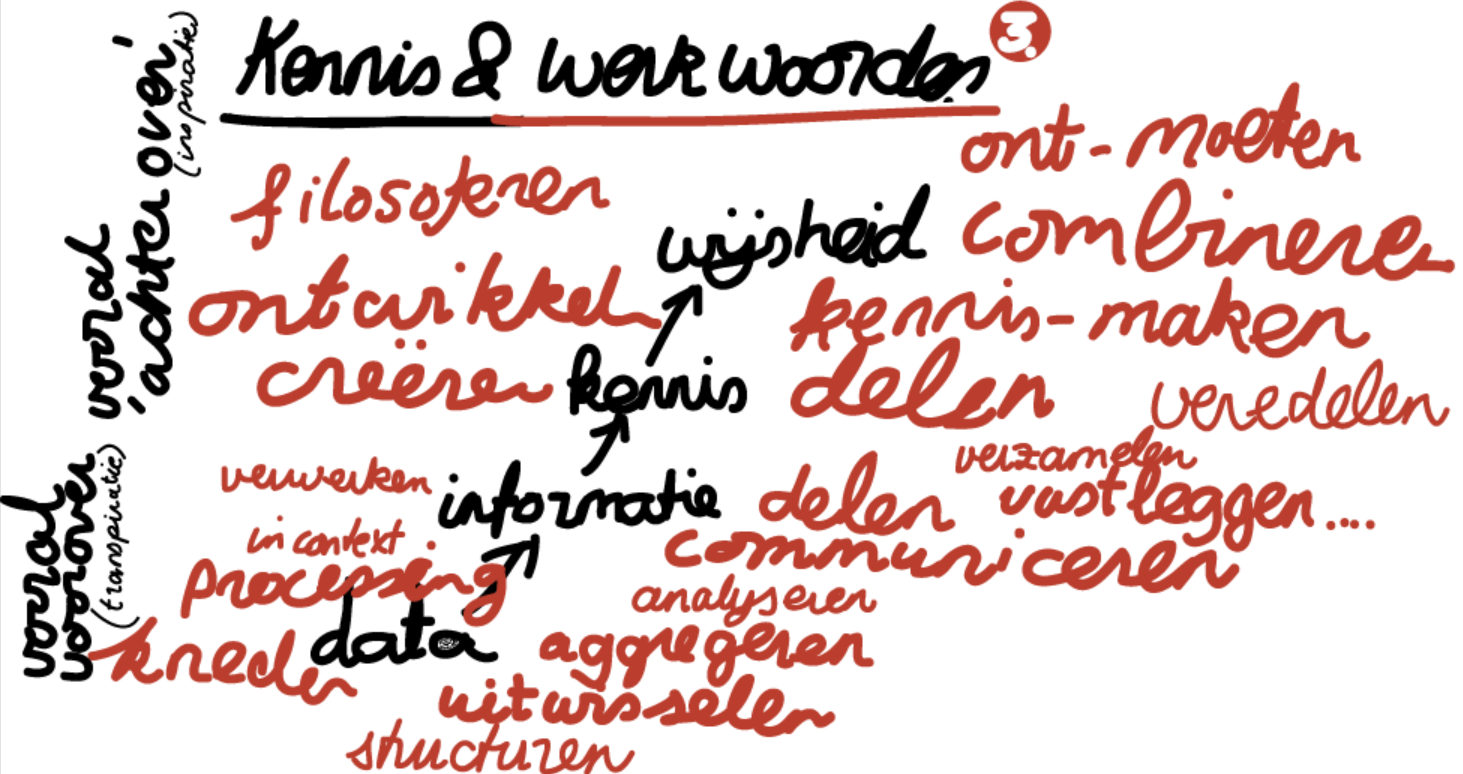 Kennis & werkwoorden
3.
vooral
'achterover'
(inspiratie)
filosoferen
wijsheid
ont-moeten
combineren
ontwikkelen
kennis-maken
creëren
kennis
delen
veredelen
vooral
voorover
(transpiratie)
verwerken
informatie
delen
verzamelen
vastleggen....
in context
processing
communiceren
analyseren
kneden
data
aggregeren
uitwisselen
structuren